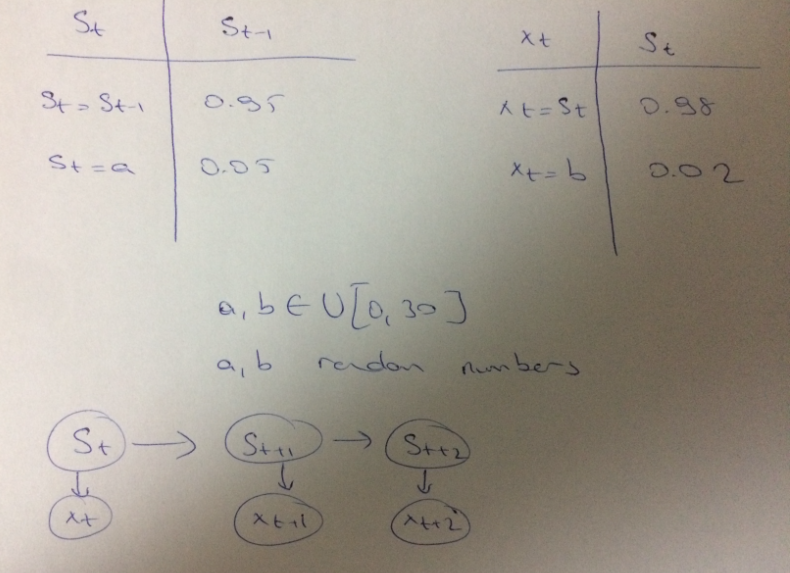 St St-1 xt St
St = St-1 0.95 xt = St 0.98
St = a 0.05 xt = b 0.02
a, b ∈ U[0, 30]
a, b random numbers
St → St+1 → St+2
xt xt+1 xt+2